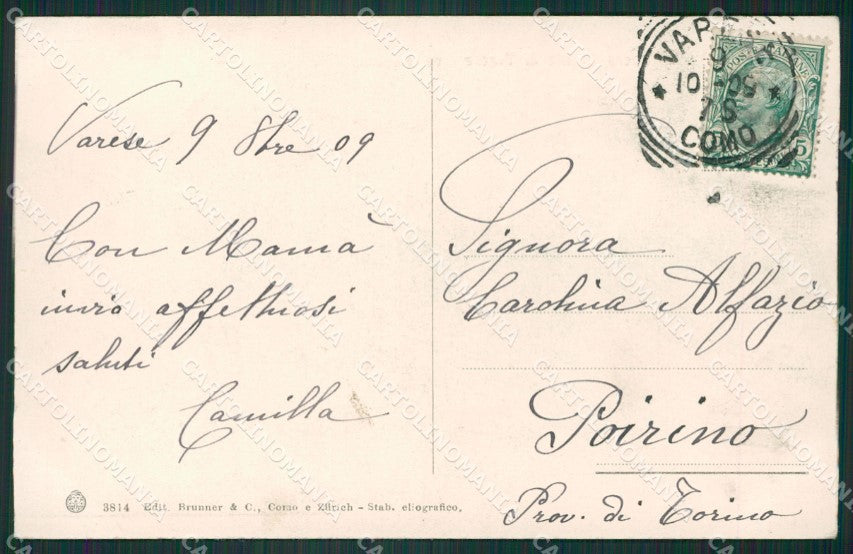 VARESE
9
10-09
7 S
COMO
POSTE ITALIANE
5
Varese 9 8bre 09
Con Mamà
invio affettuosi
saluti
Camilla
Signora
Carolina Alfazio
Poirino
Prov. di Torino
3814 Edit. Brunner & C., Como e Zürich - Stab. eliografico.
CARTOLINOMANIA